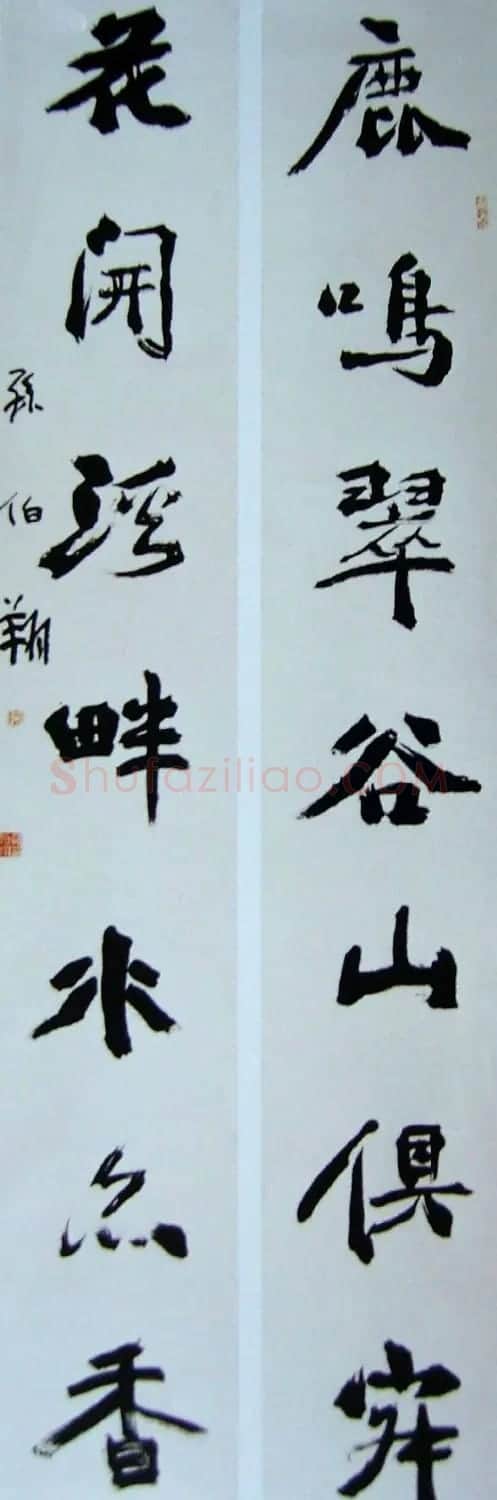 鹿鳴翠谷山俱
花開溪畔水亦香
孫伯翔
Shufaziliao.COM